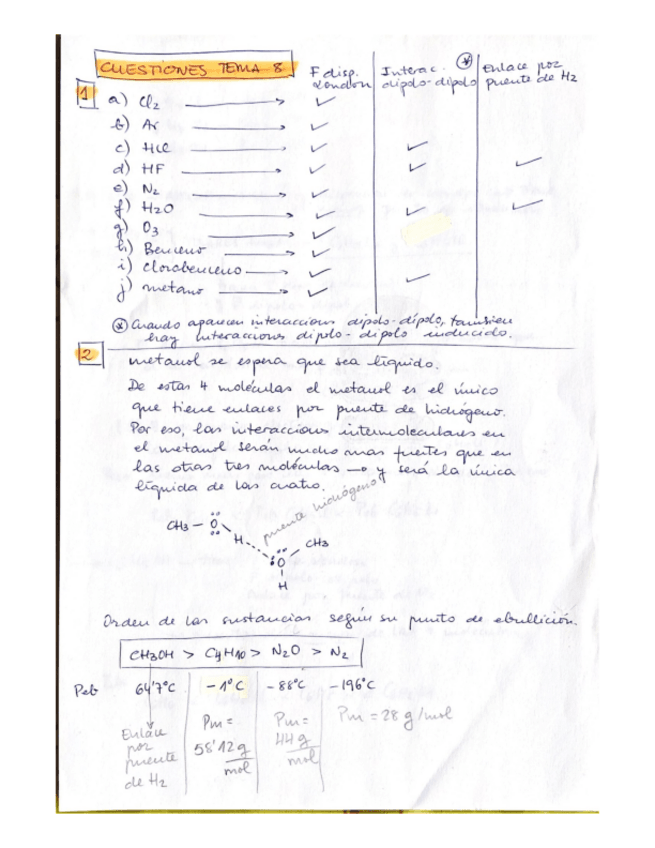 CUESTIONES TEMA 8
F disp. London
Interac. dipolo-dipolo (*)
Enlace por puente de H2
1
a) Cl2 → ✓
b) Ar → ✓
c) HCl → ✓ ✓
d) HF → ✓ ✓ ✓
e) N2 → ✓
f) H2O → ✓ ✓ ✓
g) O3 → ✓
h) Benceno → ✓
i) Clorobenceno → ✓ ✓
j) metano → ✓
(*) Cuando aparecen interaccions dipolo-dipolo, tambien
hay interaccions dipolo-dipolo inducido.
2
metanol se espera que sea líquido.
De estas 4 moléculas el metanol es el único
que tiene enlaces por puente de hidrógeno.
Por eso, las interaccions intermoleculares en
el metanol serán mucho mas fuertes que en
las otras tres moléculas → y será la única
líquida de las cuatro.
puente hidrógeno
CH3 – O
H
O
CH3
H
Orden de las sustancias según su punto de ebullición.
CH3OH > C4H10 > N2O > N2
Peb 64'7°C -1°C -88°C -196°C
Enlace por puente de H2
Pm = 58'12 g/mol
Pm = 44 g/mol
Pm = 28 g/mol